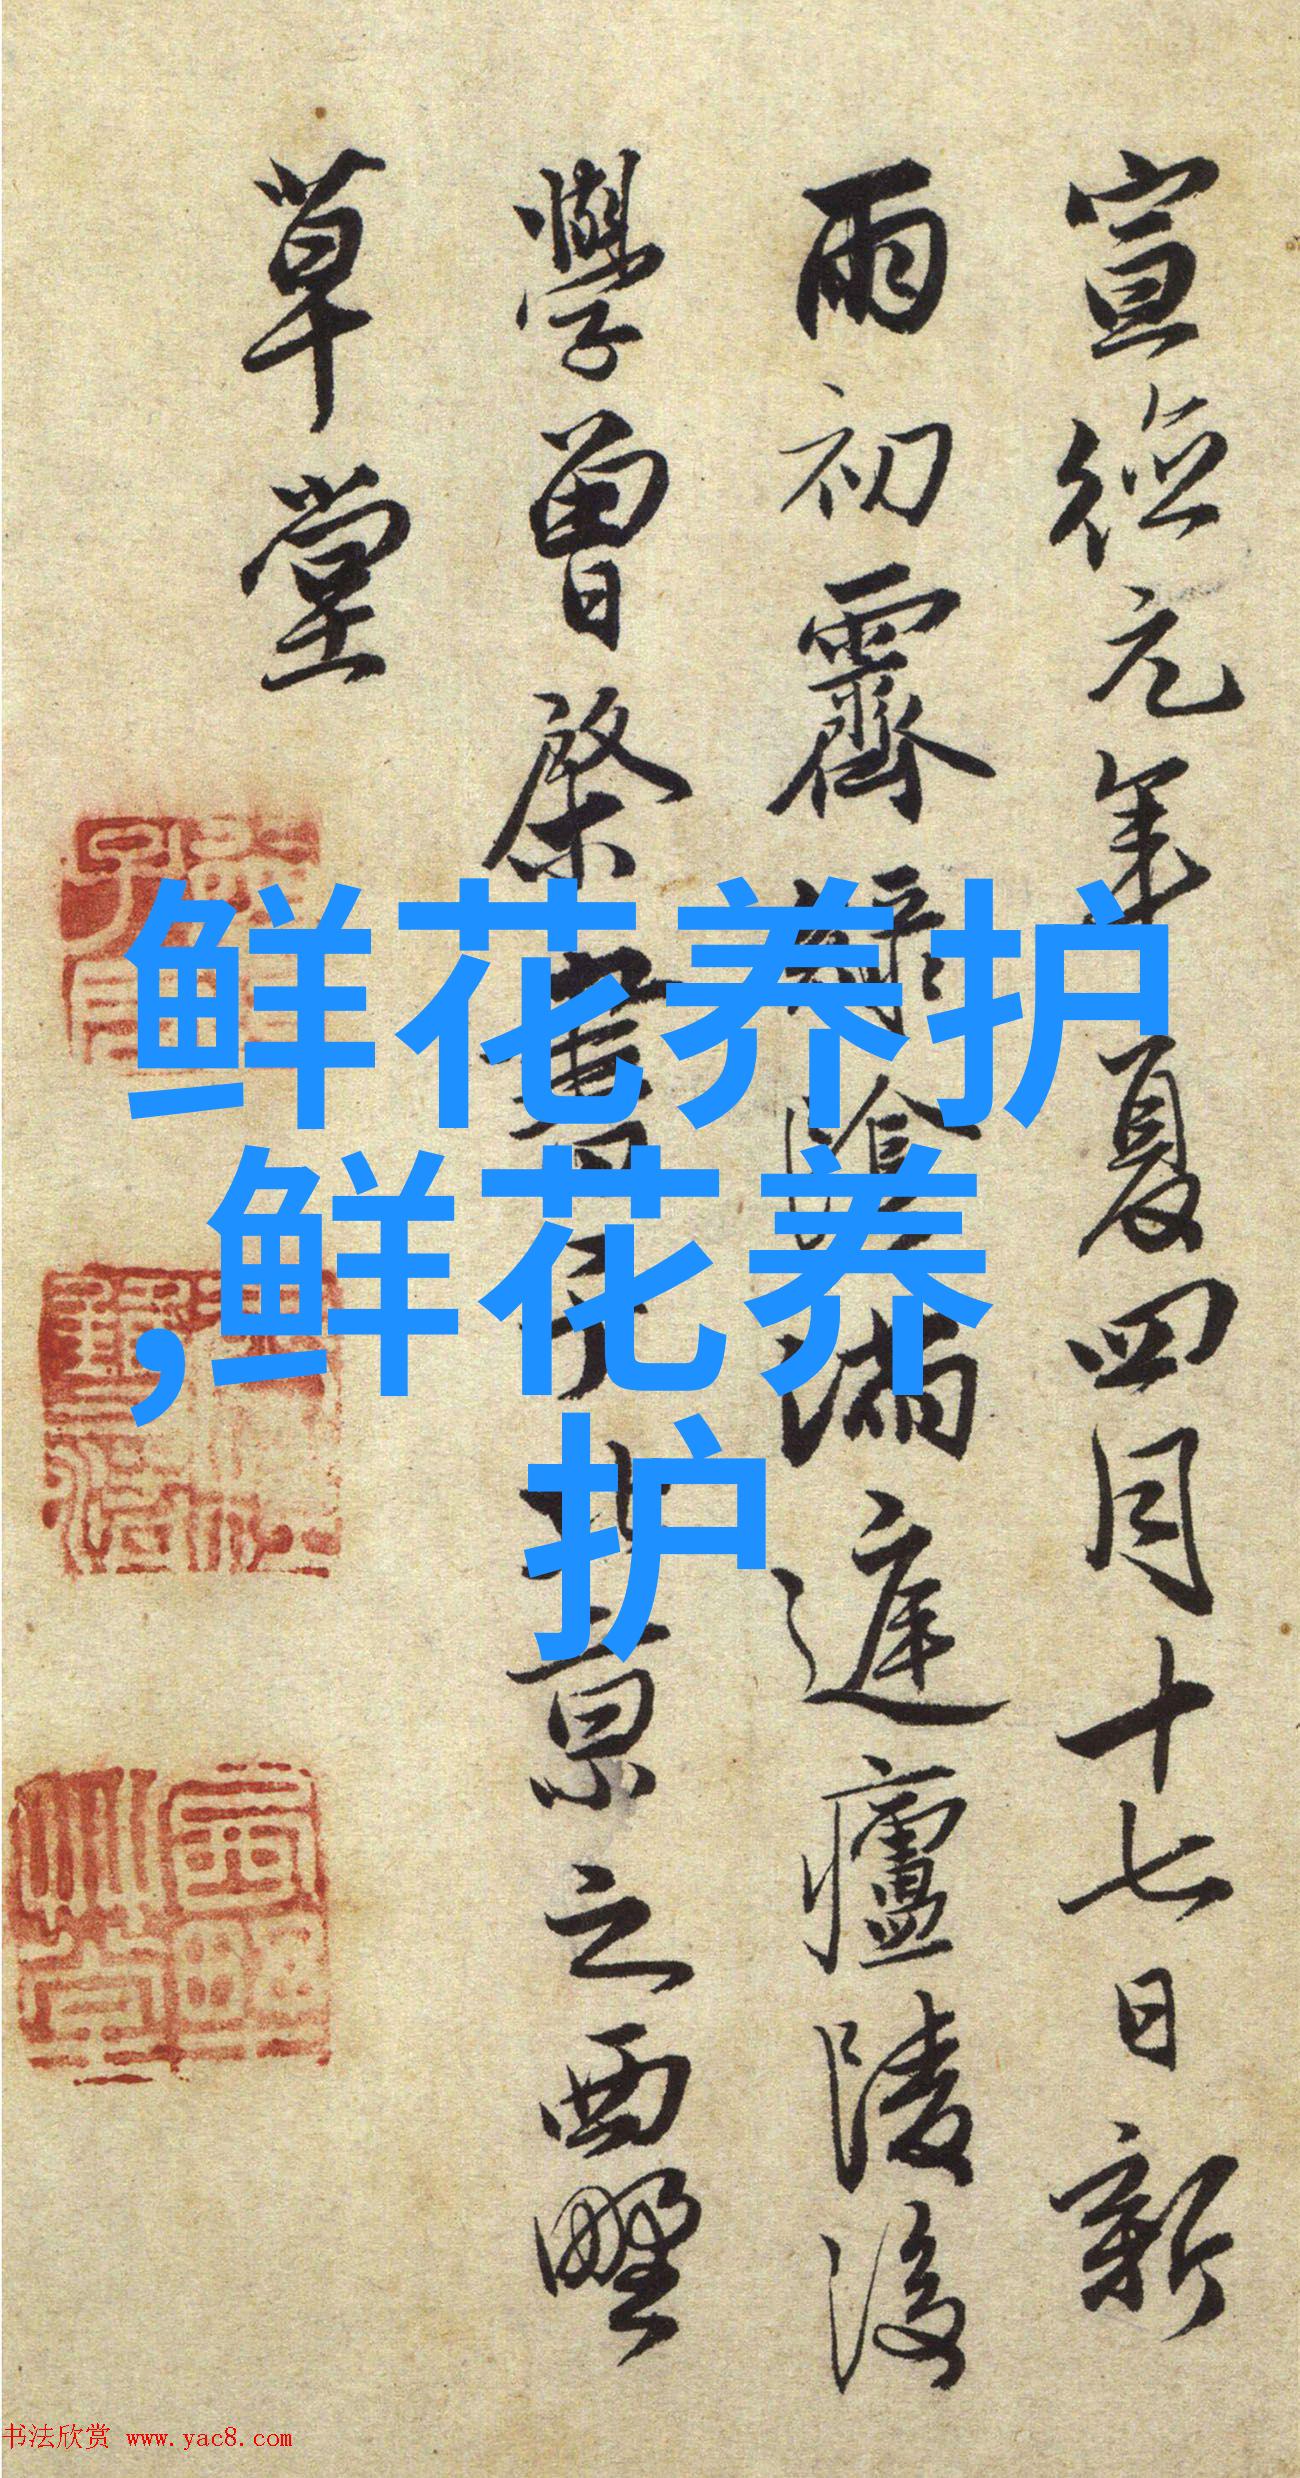 宣德元年夏四月十七日新
雨初霽 陰滿遲廬陵後
學曾棨書于北京之西墅
草堂
鲜花养护
,鲜花养
护
书法欣赏 www.yac8.com